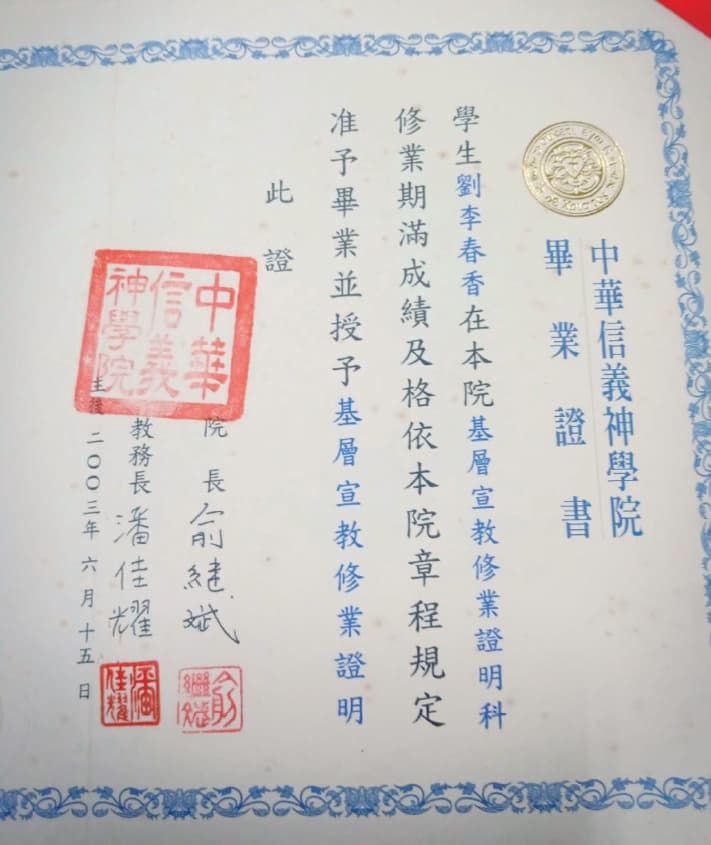 中華信義神學院
畢業證書
學生劉李春香在本院基層宣教修業證明科
修業期滿成績及格依本院章程規定
准予畢業並授予基層宣教修業證明
此證
中華
信義
神學院
院長 俞繼斌
俞繼斌
教務長 潘佳耀
潘佳耀
主後二〇〇三年六月十五日